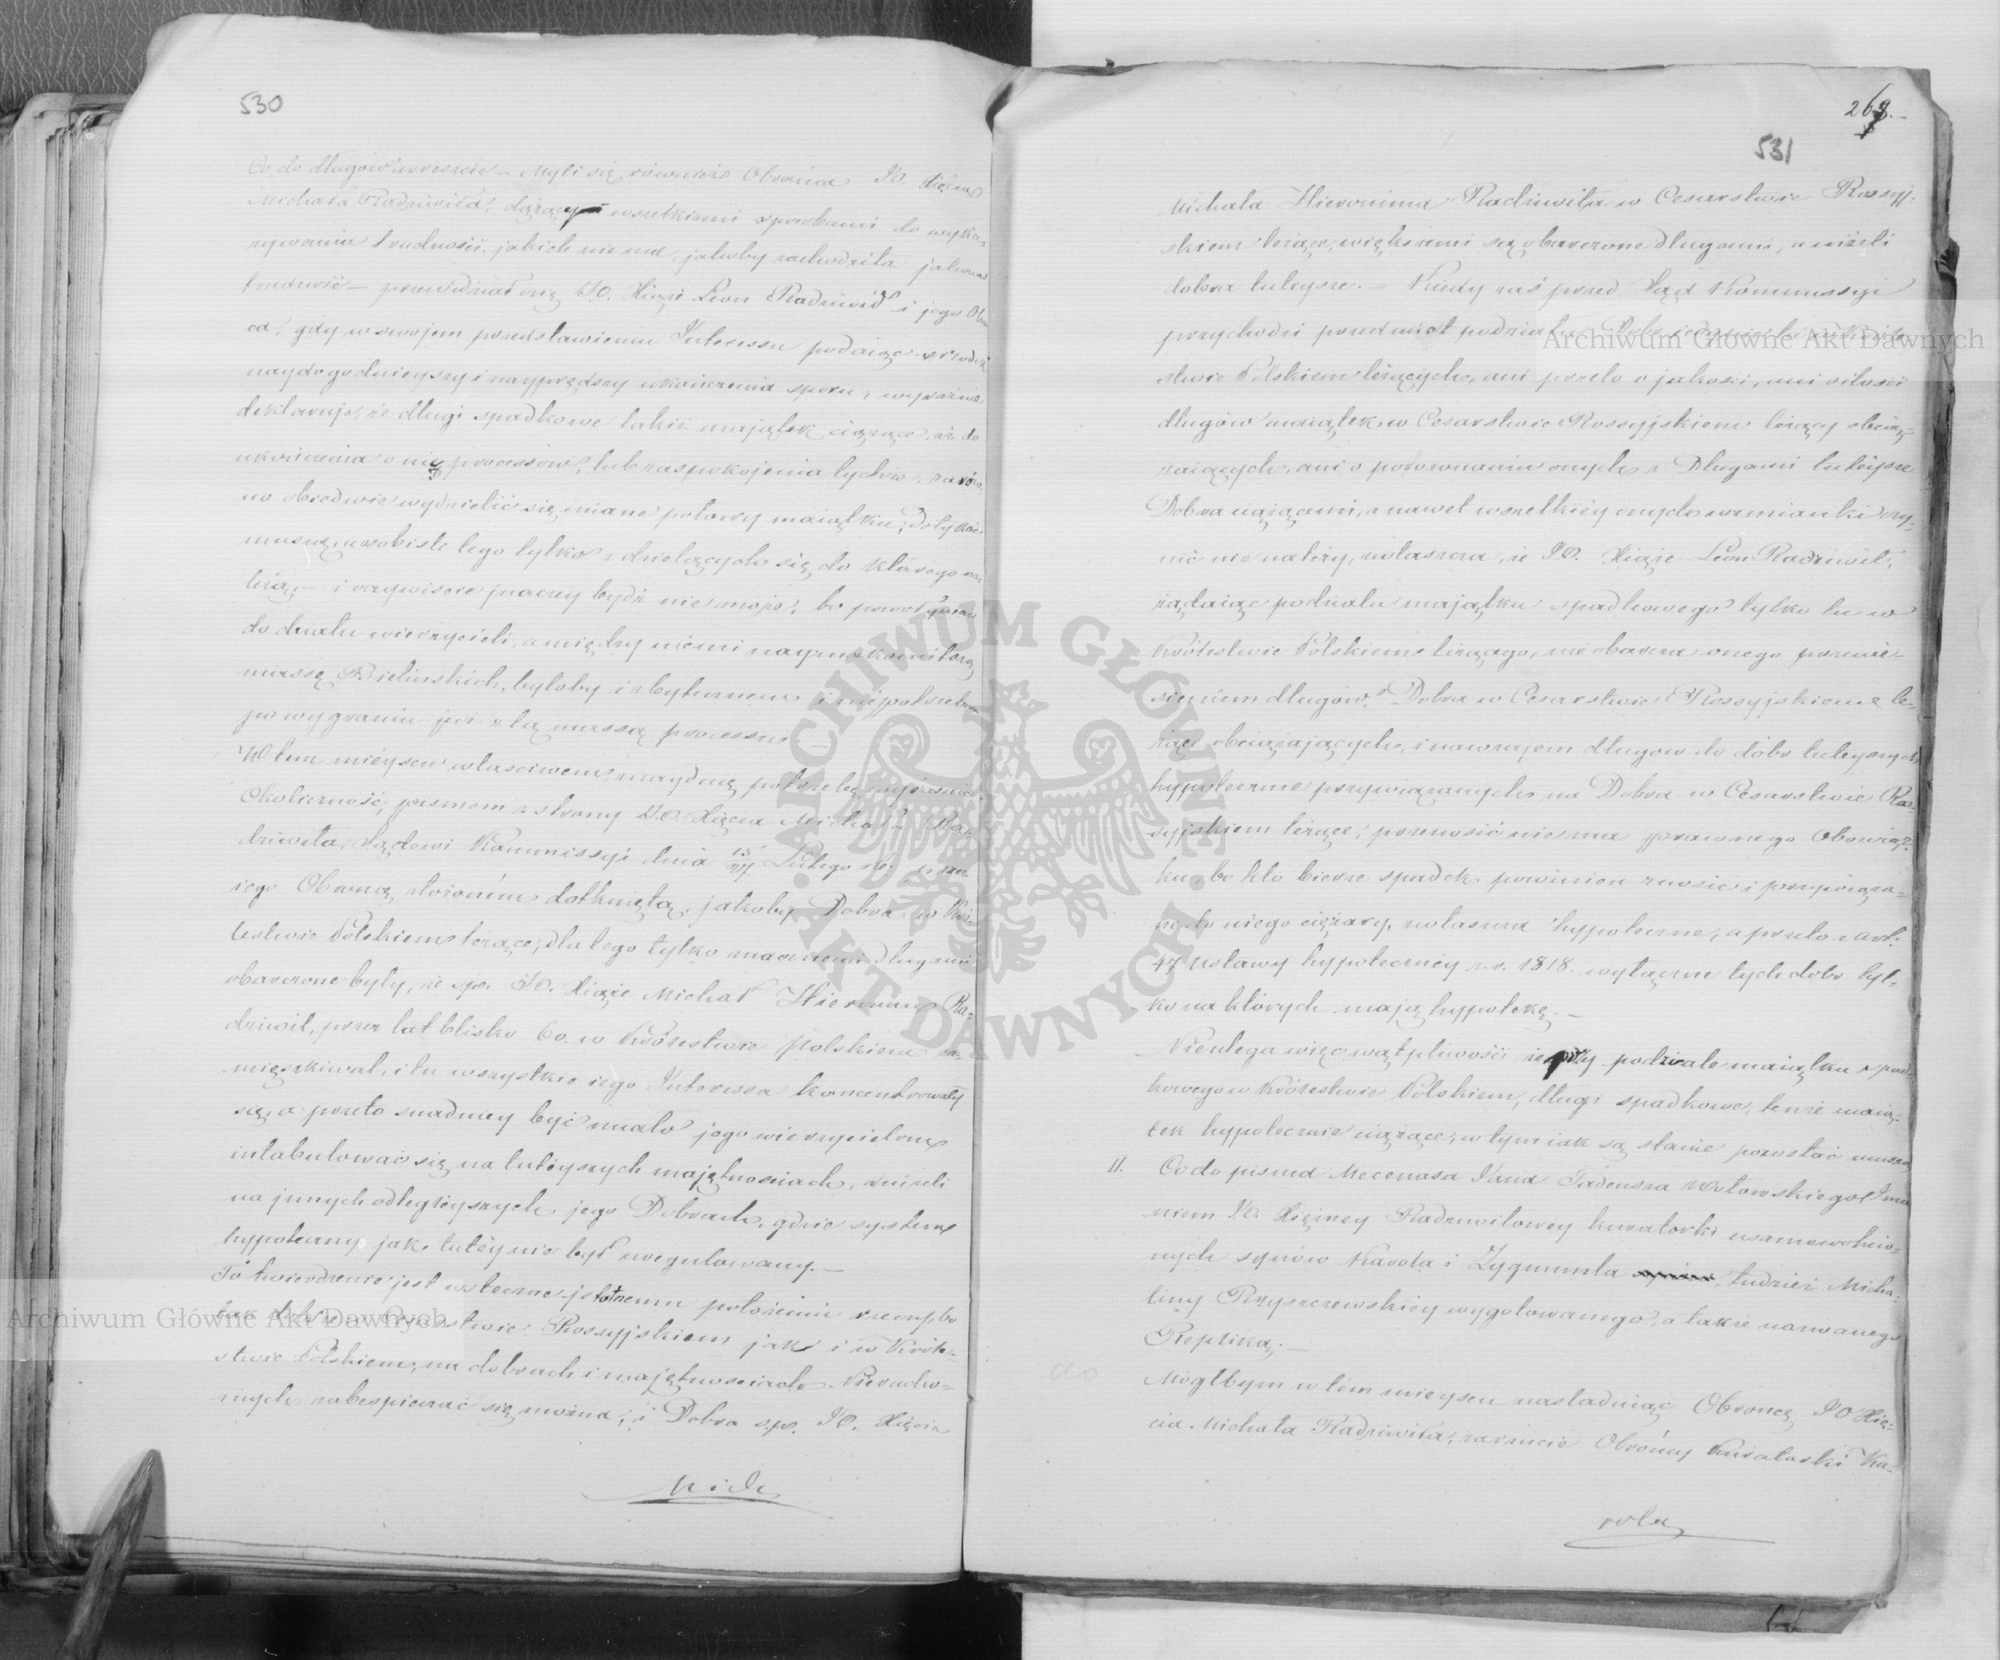 530
Co do długów wreszcie – Myli się również Obrona JO. Xięcia
Michała Radziwiła, dążąc wszelkiemi sposobami do wyka-
zywania trudności jakich nie ma, jakoby zachodziła jakowa
trudność – przewidział onę JO. Xiąże Leon Radziwił i jego Obro
ca, gdy w swojem przedstawieniu Interessu podaiąc
naydogodnieyszy i nayprędszy ukończenia sporu, wyraźnie
deklaruje, że długi spadkowe takiż majątek ciążące, aż do
ukończenia o nie processów, lub zaspokojenia tychże, zarów
no obiedwie wydzielić się miane połowy maiątku, dotykać
muszą, a osobiste tego tylko z dzielących się do którego na
leżą, – i oczywiście inaczey bydź nie może, bo
do działu wierzycieli, a między niemi nayznakomitszą
massę Bielinskich, byłoby i zbytecznem i niepotrzebnem
po wygraniu już z tą massą processu. –
W tem mieyscu właściwem znayduię potrzebę
Okoliczność, pismem z strony JO. Xięcia Michała Ra-
dziwiła, Sądowi Kommissyi dnia 15/27 Lutego rb. przez
iego Obronę złożoném dotkniętą, jakoby Dobra w Kró-
lestwie Polskiem leżące, dla tego tylko znacznemi długami
obarczone były, że śp. JO. Xiąże Michał Hieronim Ra-
dziwił, przez lat blisko 60. w Królestwie Polskiem za-
mięszkiwał, i tu wszystkie iego Interessa koncentrowały
się, a przeto snadniey być miało jego wierzycielom
intabulować się na tutéyszych majętnosciach, aniżeli
na innych odlegléyszych jego Dobrach, gdzie system
hypoteczny jak tutéy nie był uregulowany. –
To twierdzenie jest wsteczne istotnemu położeniu rzeczy, bo
tak dobrze w Cesarstwie Rossyjskiem jak i w Króle-
stwie Polskiem, na dobrach i majętnosciach Nierucho-
mych zabespieczać się można, i Dobra s.p. JO. Xięcia
Mich
269.
531
Michała Hieronima Radziwiła w Cesarstwie Rossyj-
skiem leżące, większemi są obarczone długami, a niżeli
dobra tuteysze. – Kiedy zaś przed Sąd Kommissyi
przychodzi przedmiot podziału Dóbr jedynie tu w Króle-
stwie Polskiem leżących, ani przeto o jakości, ani o ilości
długów maiątek w Cesarstwie Rossyjskiem leżący obcią-
żaiących, ani o porownaniu onych z Długami tutéysze
Dobra ciążącemi, a nawet wszelkiéy onych wzmianki czy-
nić nie należy, zwłaszcza, że JO. Xiąże Leon Radziwił,
żądaiąc podziału majątku spadkowego tylko tu w
Królestwie Polskiem leżącego, nie obarcza onego przenie-
sieniem długów, Dobra w Cesarstwie Rossyjskiem le-
żące obciążających, i nawzajem długów do dóbr tuteyszych
hypotecznie przywiązanych na Dobra w Cesarstwie Ros-
syjskiem leżące, przenosić niema prawnego Obowiąz-
ku, bo kto bierze spadek powinien znosić i przywiąza-
ne do niego ciężary, zwłaszcza hypoteczne, a przeto z art.
47 Ustawy hypoteczney z r. 1818. wyłącznie tych dóbr tyl-
ko na których mają hypotekę. –
Nieulega więc wątpliwości, że przy podziale maiątku spad-
kowego w Królestwie Polskiem, długi spadkowe, tenże maią-
tek hypotecznie ciążące, w tym iak są stanie pozostać muszą
II. Co do pisma Mecenasa Pana Tadeusza Wołowskiego Imie
niem JO. Xiężney Radziwiłowey kuratorki usamowolnio-
nych synów Karola i Zygmunta tudzież Micha-
liny Rzyszczewskiéy wygotowanego, a także nazwanego
Repliką. –
Mógłbym w tém mieyscu naśladuiąc Obroncę JO Xię-
cia Michała Radziwiła, zarzucić Obrońcy Kuratorki Ka-
rola